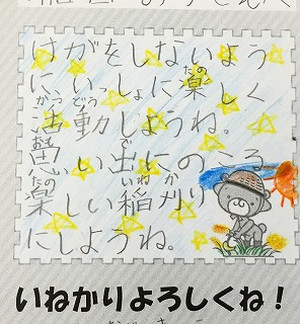 はがをしないよう
に、いっしょに楽しく
活動しようね。
思い出にのこる
楽しい稲刈り
にしようね。
いねかりよろしくね!